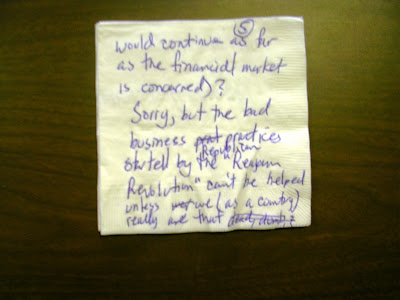 5
would continue as far
as the financial market
is concerned)?
Sorry, but the bad
business prat practices
Republican
started by the "Reagan
Revolution" can't be helped
unless we (as a country)
really are that dumb,?